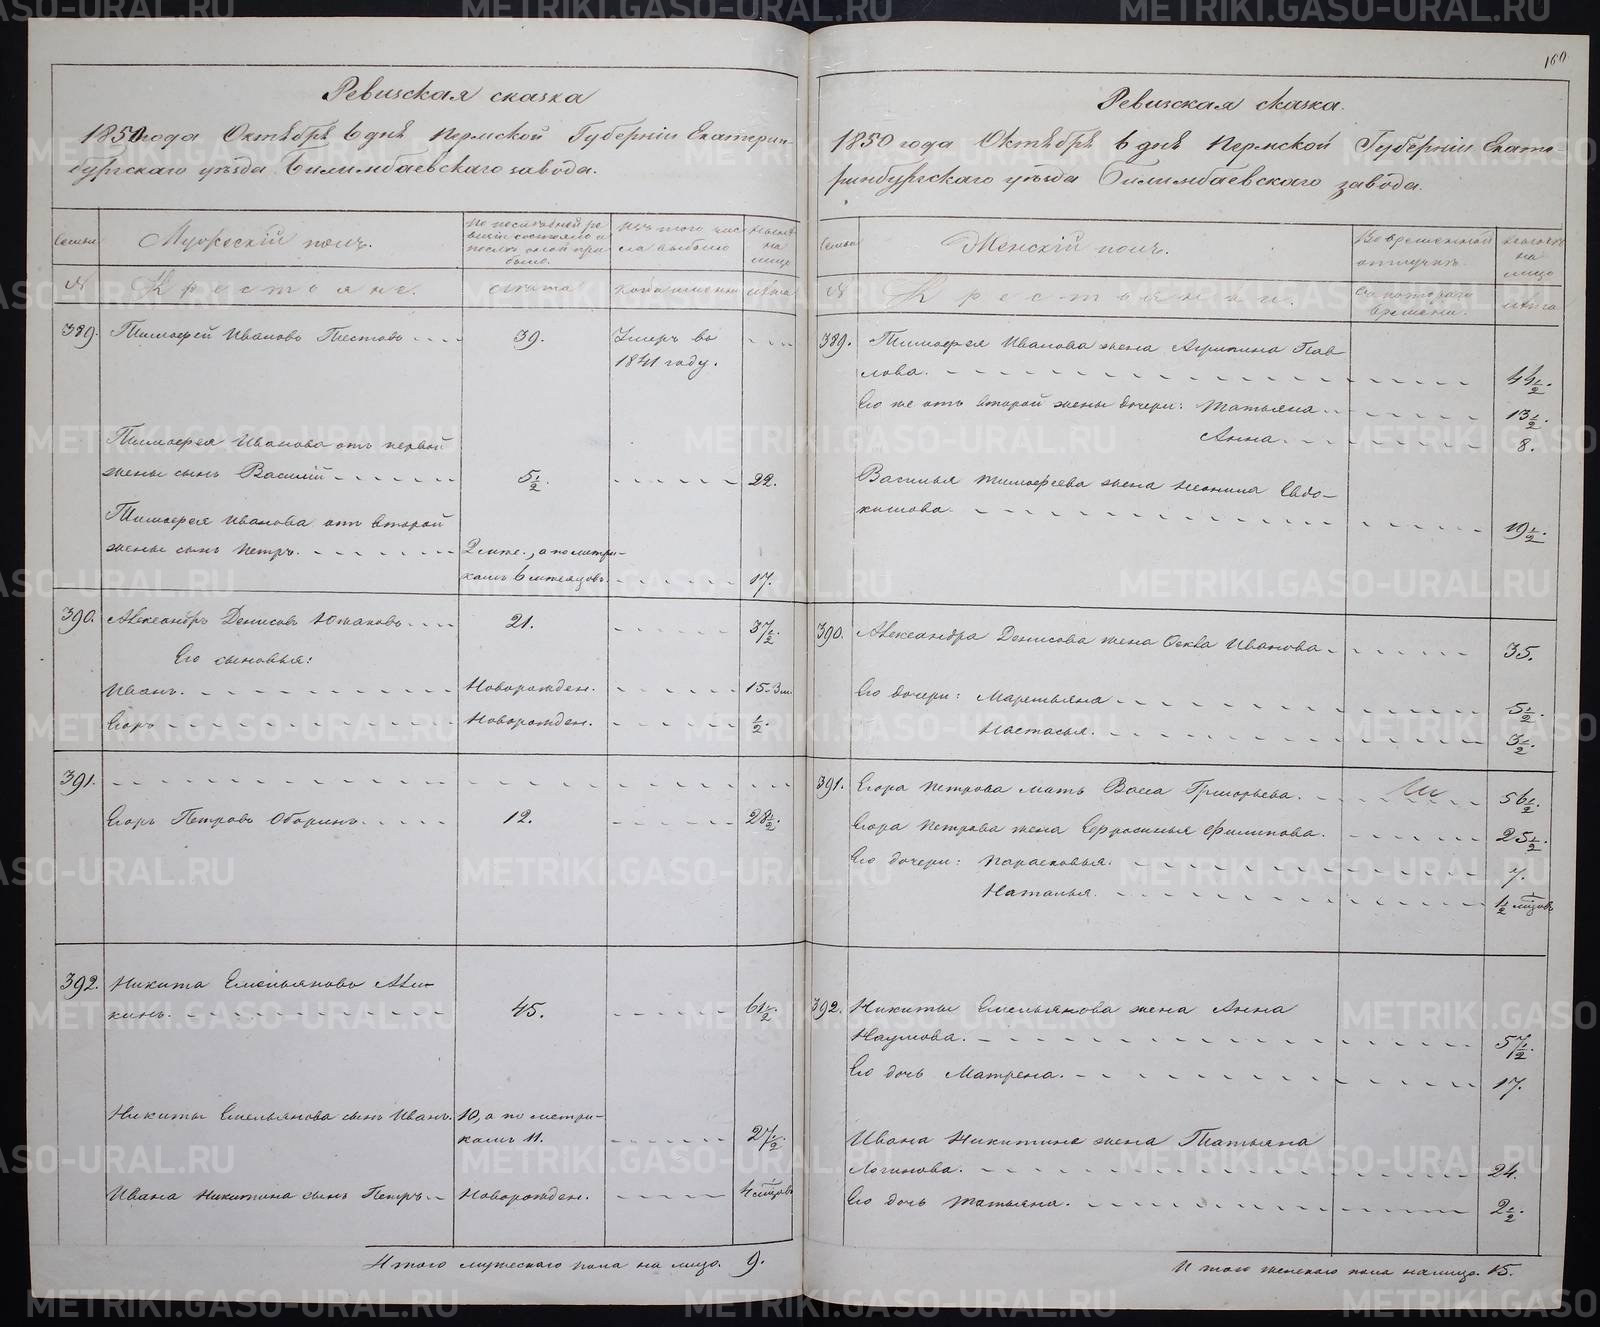 160
Ревизская сказка
1850 года Октября 6 дня Пермской Губернiи Екатерин-
бургскаго уѣзда Билимбаевскаго завода.
Семьи
Мужескiй полъ.
По послѣдней ре
визiи состояло и
послѣ оной при
было.
Изъ того чис
ла выбыло
Нынѣ
на
лицо
№
Крестьяне.
Лѣта
когда именно
Лѣта
389. Тимофей Ивановъ 39. Умеръ въ
1841 году.
Тимофея Иванова отъ первой
жены сынъ Василiй 5 1/2. 22.
Тимофея Иванова отъ второй
жены сынъ Петръ. 2 мѣс., а по метри-
камъ 6 месяцовъ. 17.
390. Александръ Денисовъ Южаковъ 21. 37 1/2.
Его сыновья:
Иванъ. Новорожден. 15. 3 м.
Егоръ Новорожден. 1/2.
391.
Егоръ Петровъ Оборинъ. 12. 28 1/2.
392. Никита Емельяновъ Али-
кинъ. 45. 61 1/2.
Никиты Емельянова сынъ Иванъ. 10, а по метри-
камъ 11. 27 1/2.
Ивана Никитина сынъ Петръ Новорожден. 4 мѣсцовъ
Итого мужескаго пола на лицо. 9.
Ревизская сказка.
1850 года Октября 6 дня Пермской Губернiи Екате-
ринбургскаго уѣзда Билимбаевскаго завода.
Семьи
Женскiй полъ.
Во временной
отлучкѣ.
Нынѣ
на
лицо
№
Крестьянки.
Съ котораго
времени.
Лѣта
389. Тимофея Иванова жена Агрипина Пав-
лова. 44 1/2.
Его же отъ второй жены дочери: Татьяна 13 1/2.
Анна. 8.
Василья Тимофеева жена Неонила Евдо-
кимова. 19 1/2.
390. Александра Денисова жена Фекла Иванова 35.
Его дочери: Маремьяна 5 1/2.
Настасья. 3 1/2.
391. Егора Петрова мать Васса Григорьева. 56 1/2.
Егора Петрова жена Ефросинья Филипова. 25 1/2.
Его дочери: Парасковья. 7.
Наталья. 1 1/2 мѣсцовъ
392. Никиты Емельянова жена Анна
Наумова. 57 1/2.
Его дочь Матрена. 17.
Ивана Никитина жена Татьяна
Логинова. 24.
Его дочь Татьяна. 2 1/2.
Итого женскаго пола на лицо. 15.
METRIKI.GASO-URAL.RU